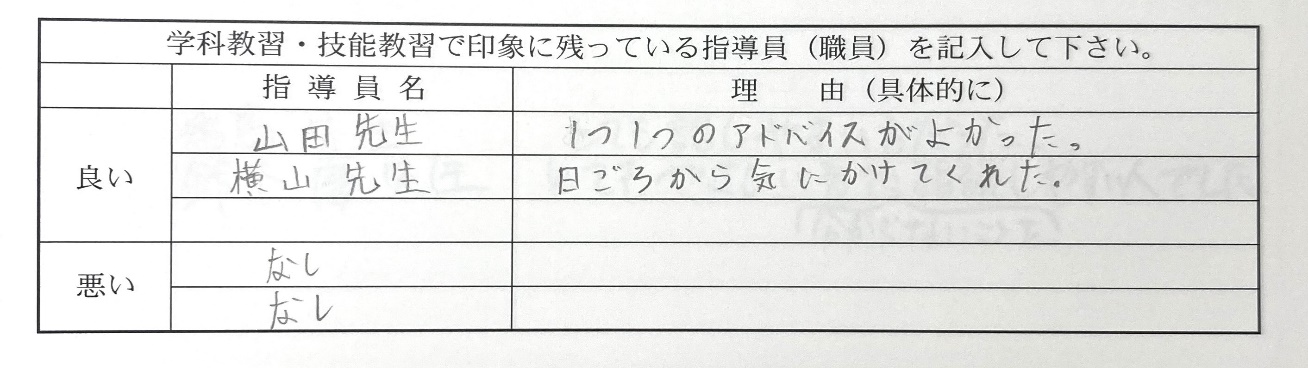 学科教習・技能教習で印象に残っている指導員（職員）を記入して下さい。
指導員名 理由（具体的に）
良い 山田先生 1つ1つのアドバイスがよかった。
横山先生 日ごろから気にかけてくれた。
悪い なし
なし